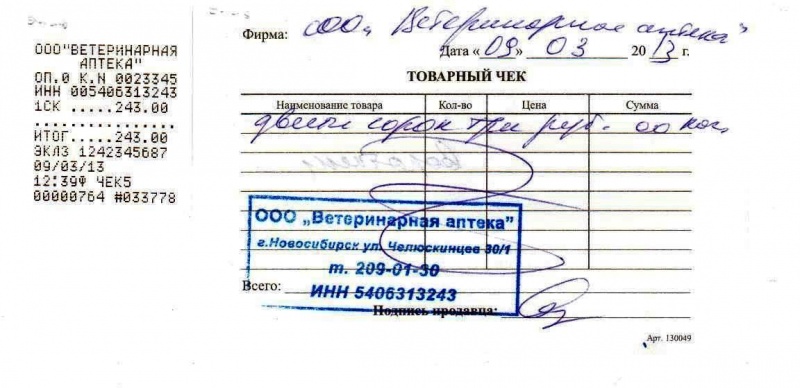 ООО"ВЕТЕРИНАРНАЯ
АПТЕКА"
ОП.0 К.N 0023345
ИНН 005406313243
1СК .....243.00
................
ИТОГ.....243.00
ЭКЛЗ 1242345687
09/03/13
12:39Ф ЧЕК5
00000764 #033778
Фирма: ООО „Ветеринарная аптека"
Дата «09» 03 2013 г.
ТОВАРНЫЙ ЧЕК
Наименование товара Кол-во Цена Сумма
двести сорок три руб. 00 коп.
ООО „Ветеринарная аптека"
г.Новосибирск ул. Челюскинцев 30/1
т. 209-01-30
ИНН 5406313243
Всего:
Подпись продавца:
Арт. 130049